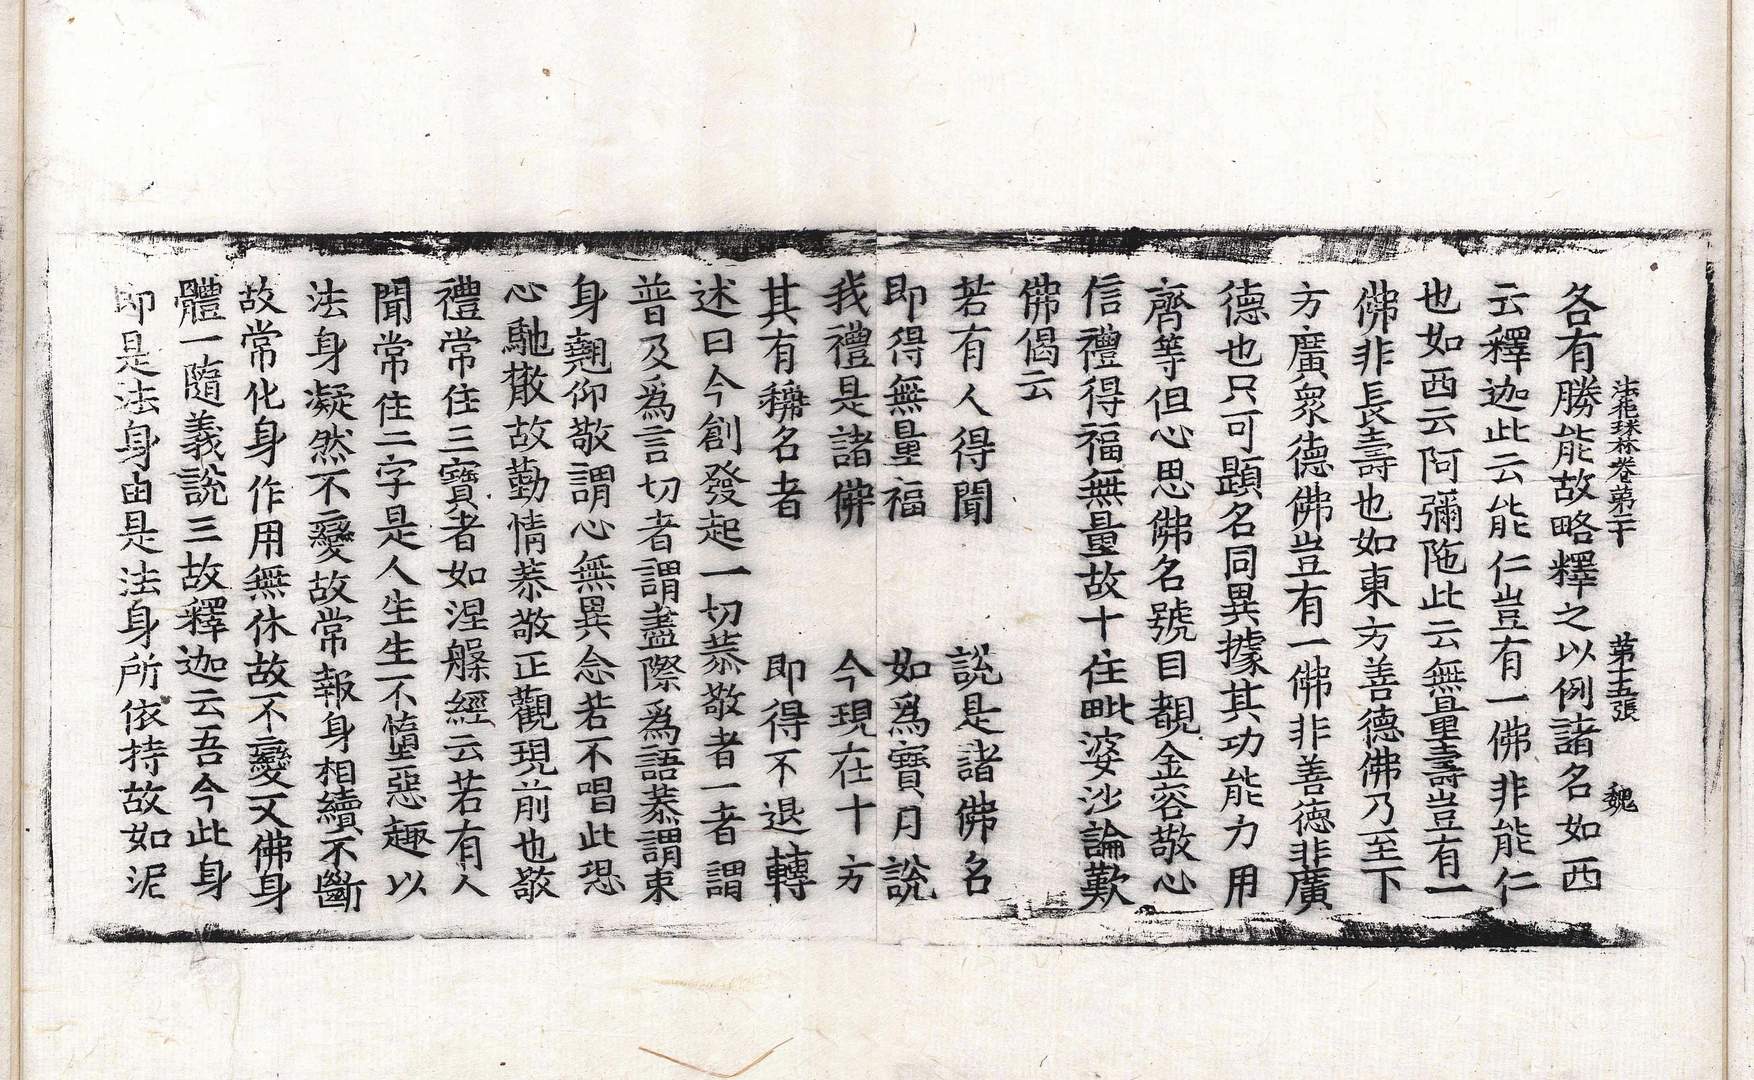 法苑珠林卷第二十 第十五張 魏
各有勝能故略釋之以例諸名如西
云釋迦此云能仁豈有一佛非能仁
也如西云阿彌陁此云無量壽豈有一
佛非長壽也如東方善德佛乃至下
方廣衆德佛豈有一佛非善德非廣
德也只可題名同異據其功能力用
齊等但心思佛名號目覩金容敬心
信禮得福無量故十住毗婆沙論歎
佛偈云
若有人得聞 說是諸佛名
即得無量福 如爲寶月說
我禮是諸佛 今現在十方
其有稱名者 即得不退轉
述曰今創發起一切恭敬者一者謂
普及爲言切者謂盡際爲語恭謂束
身翹仰敬謂心無異念若不唱此恐
心馳散故勤情恭敬正觀現前也敬
禮常住三寶者如涅槃經云若有人
聞常住二字是人生生不墮惡趣以
法身凝然不變故常報身相續不斷
故常化身作用無休故不變又佛身
體一隨義說三故釋迦云吾今此身
即是法身由是法身所依持故如泥